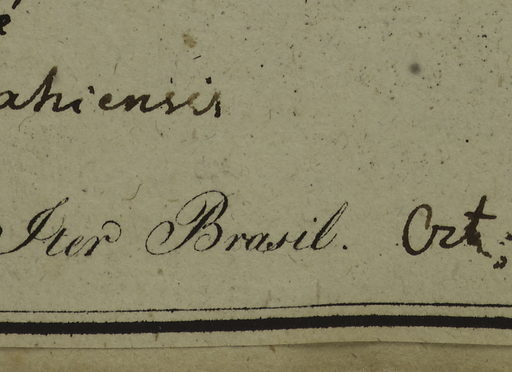 ahiensis
Iter Brasil. Oct